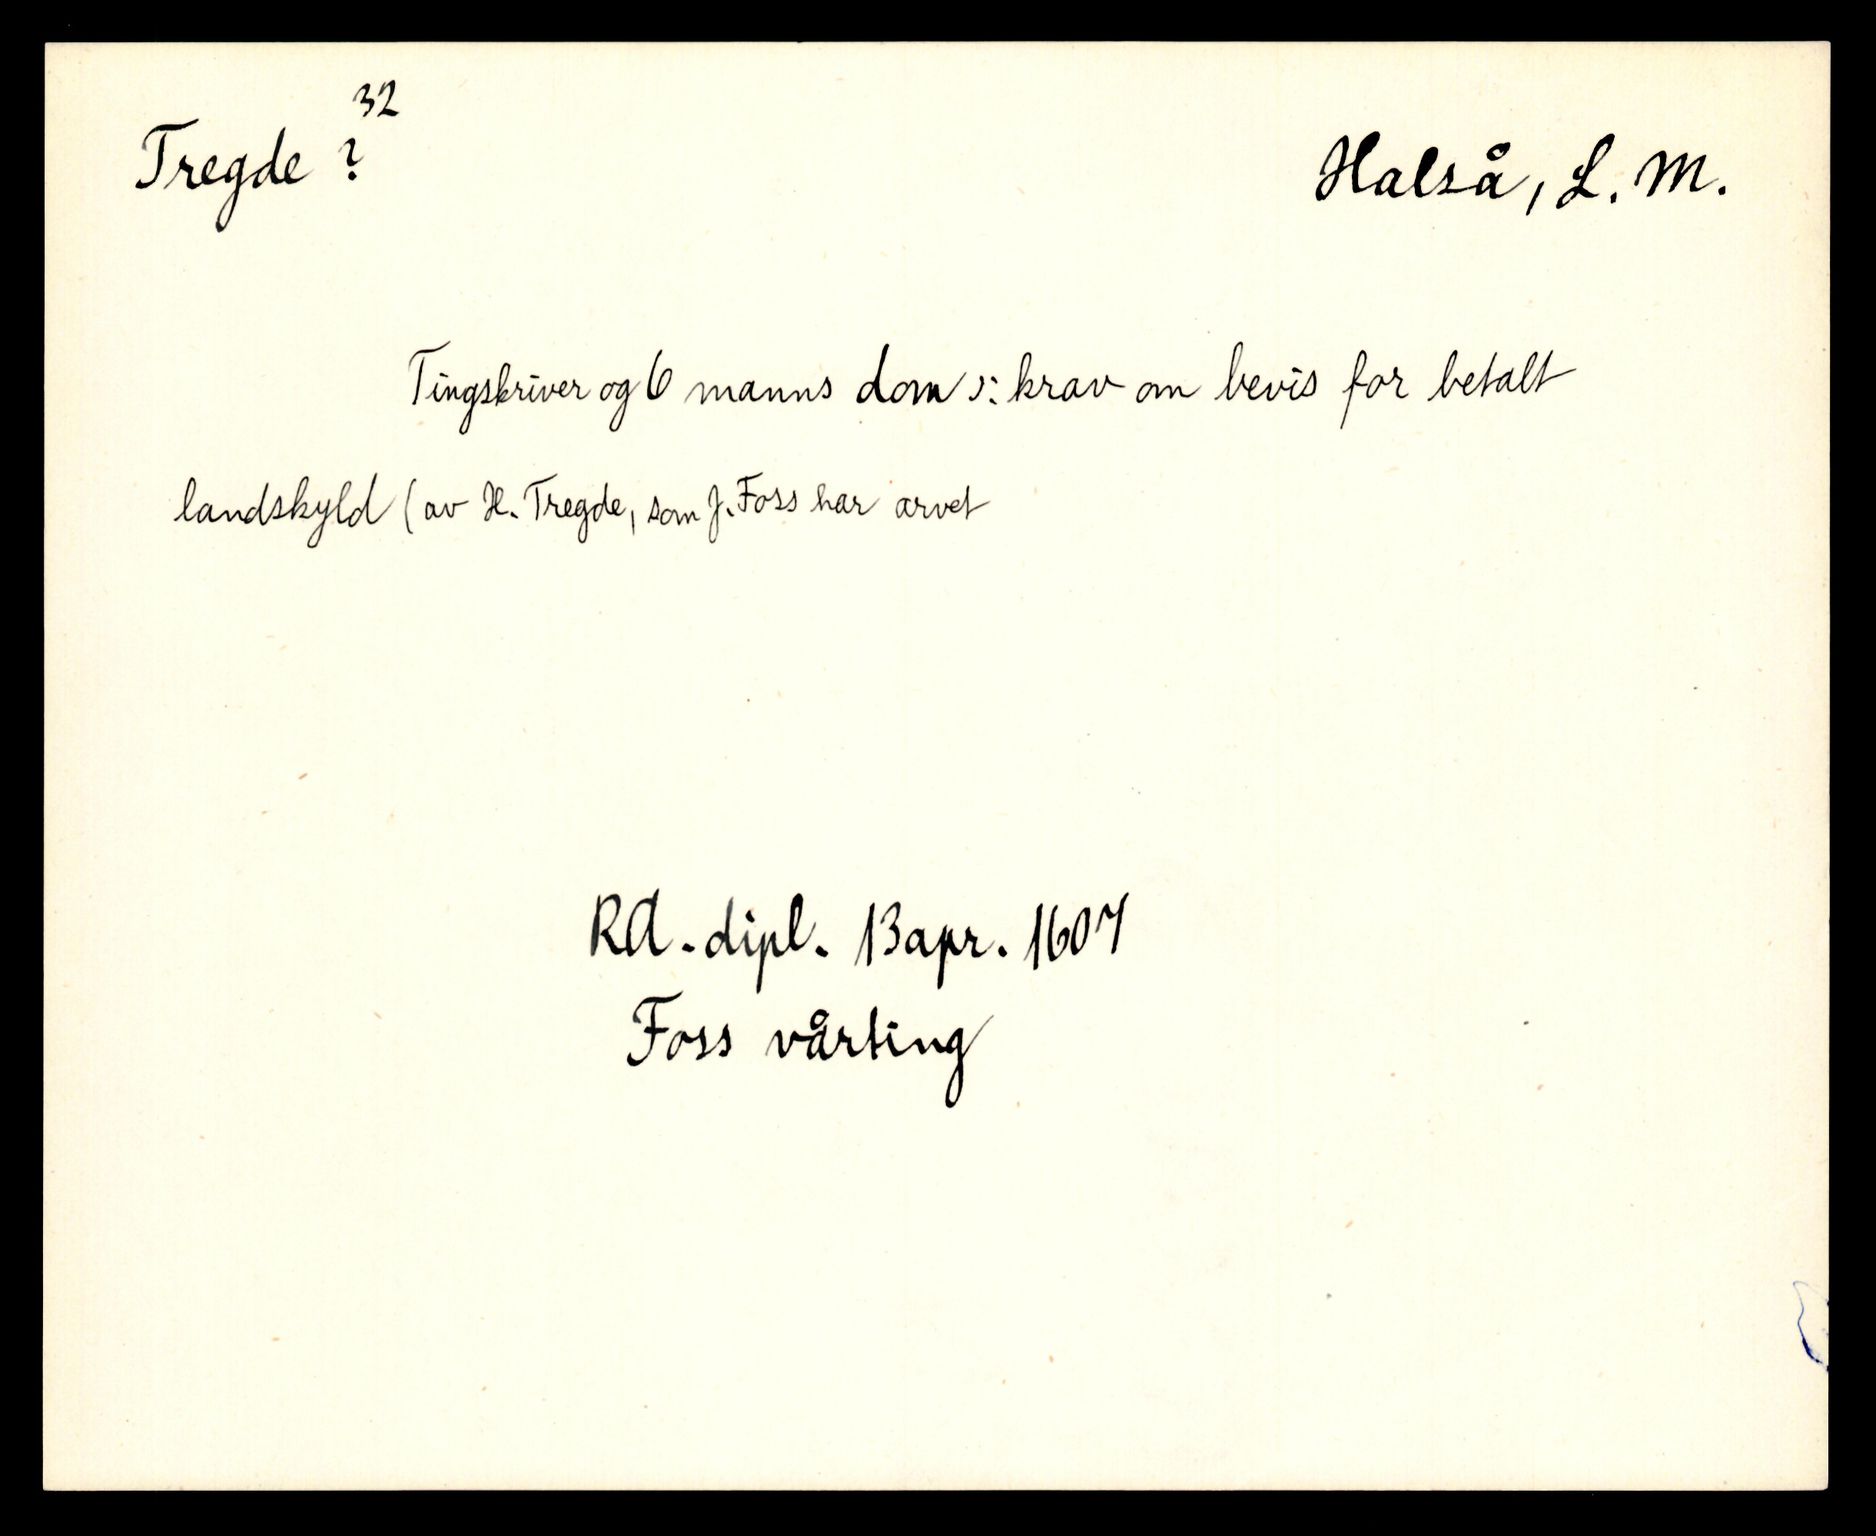 32
Tregde ?
Halså, L. M.
Tingskriver og 6 manns dom ɔ: krav om bevis for betalt
landskyld (av H. Tregde, som J. Foss har arvet
RA. dipl. 13 apr. 1607
Foss vårting